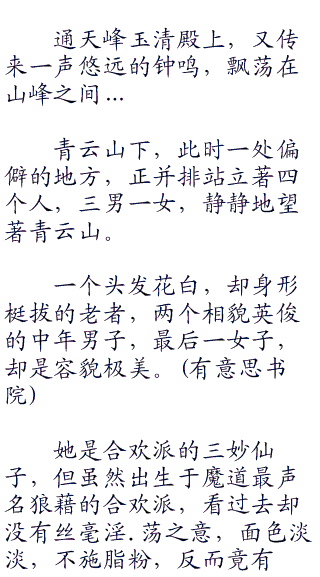 通天峰玉清殿上，又传
来一声悠远的钟鸣，飘荡在
山峰之间...
青云山下，此时一处偏
僻的地方，正并排站立著四
个人，三男一女，静静地望
著青云山。
一个头发花白，却身形
梃拔的老者，两个相貌英俊
的中年男子，最后一女子，
却是容貌极美。(有意思书
院)
她是合欢派的三妙仙
子，但虽然出生于魔道最声
名狼藉的合欢派，看过去却
没有丝毫淫.荡之意，面色淡
淡，不施脂粉，反而竟有